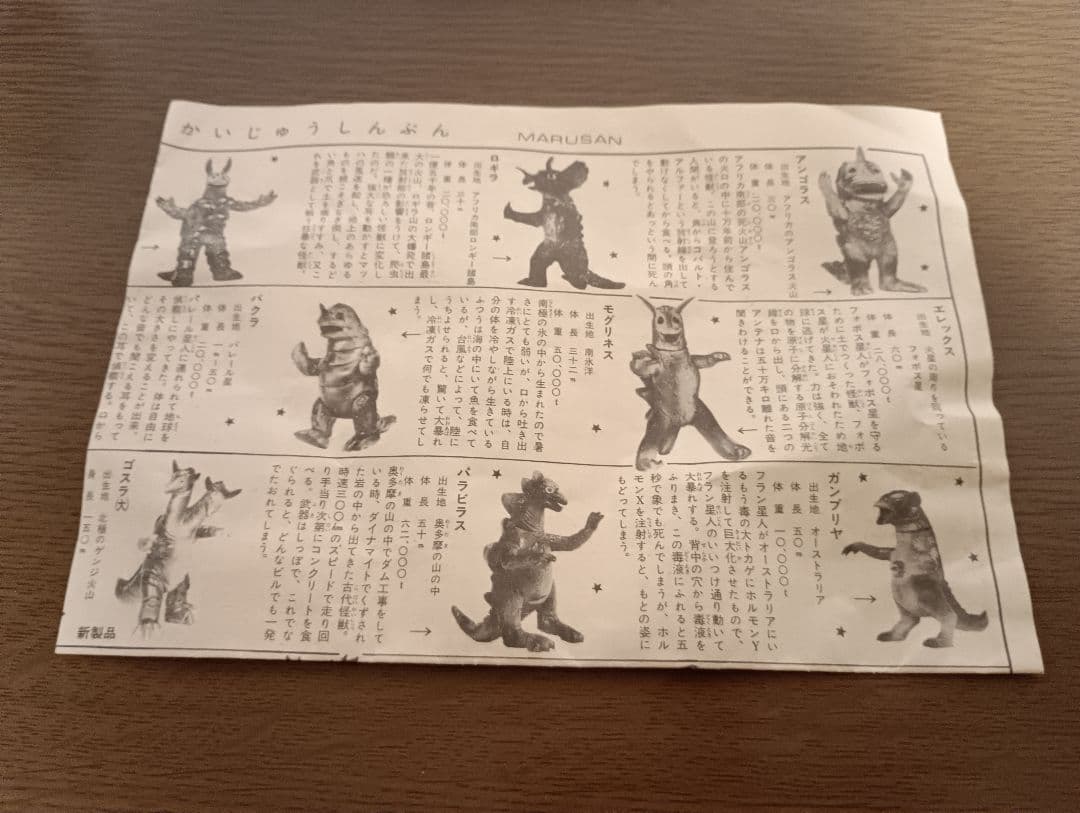 かいじゅうしんぶん
MARUSAN
アンゴラス
出生地 アフリカのアンゴラス火山
体長 三〇m
体重 二〇、〇〇〇t
アフリカ南部の死火山アンゴラス
の火口の中に十万年前から住んで
いる怪獣。この山に登ろうとする
人間がいると、鼻からコバルト・
アルファーという放射線を出して
動けなくしてから食べる。頭の角
をやられるとあっという間に死ん
でしまう。
ロギラ
出生地 アフリカ南部ロンギー諸島
体長 三十m
体重 二〇、〇〇〇t
一億五千年の昔、ロンギー諸島最
大の火山、ロギラ山の大爆発で出
来た放射能の影響をうけて、爬虫
類の一種が恐ろしい怪獣に変化し
たのだ。強大な耳を動かすとマッ
ハの風速を起し、地上のあらゆる
ものを根こそぎなぎ倒し、するど
い角と爪で土を掘りすすみ、又こ
れを武器として戦う狂暴な怪獣。
エレックス
出生地 火星の周りを回っている
フォボス星
体長 六〇m
体重 二八、〇〇〇t
フォボス星人がフォボス星を守る
ために土でつくった怪獣。フォボ
ス星が火星人におそわれたため地
球に逃げてきた。力は強く、全て
の物を原子に分解する原子分解光
線を口から出し、頭にある二つの
アンテナは五十万キロ離れた音を
聞きわけることができる。
モグリネス
出生地 南氷洋
体長 三十二m
体重 五〇、〇〇〇t
南極の氷の中から生まれたので暑
さにとても弱いが、口から吐き出
す冷凍ガスで陸上にいる時は、自
分の体を冷やしながら生きている
ふつうは海の中にいて魚を食べて
いるが、台風などによって、陸に
うちよせられると、驚いて大暴れ
し、冷凍ガスで何でも凍らせてし
まう。
バクラ
出生地 バレール星
体長 一m〜五〇m
体重 二〇、〇〇〇t
バレール星人に連れられて地球を
偵察しにやってきた。体は自由に
その大きさを変えることが出来、
どんな音でも聞こえる耳をもって
いて、この耳で偵察する。口から
ガンブリヤ
出生地 オーストラリア
体長 五〇m
体重 一〇、〇〇〇t
フラン星人がオーストラリアにい
るもう毒の大トカゲにホルモンY
を注射して巨大化させたもので、
フラン星人のいいつけ通り動いて
大暴れする。背中の穴から毒液を
ふりまき、この毒液にふれると五
秒で象でも死んでしまうが、ホル
モンXを注射すると、もとの姿に
もどってしまう。
パラビラス
出生地 奥多摩の山の中
体長 五十m
体重 六二、〇〇〇t
奥多摩の山の中でダム工事をして
いる時、ダイナマイトでくずされ
た岩の中から出てきた古代怪獣。
時速三〇〇kmのスピードで走り回
り手当り次第にコンクリートを食
べる。武器はしっぽで、これでな
ぐられると、どんなビルでも一発
でたおれてしまう。
ゴスラ(大)
出生地 北極のゲンジ火山
身長 一五〇m
新製品